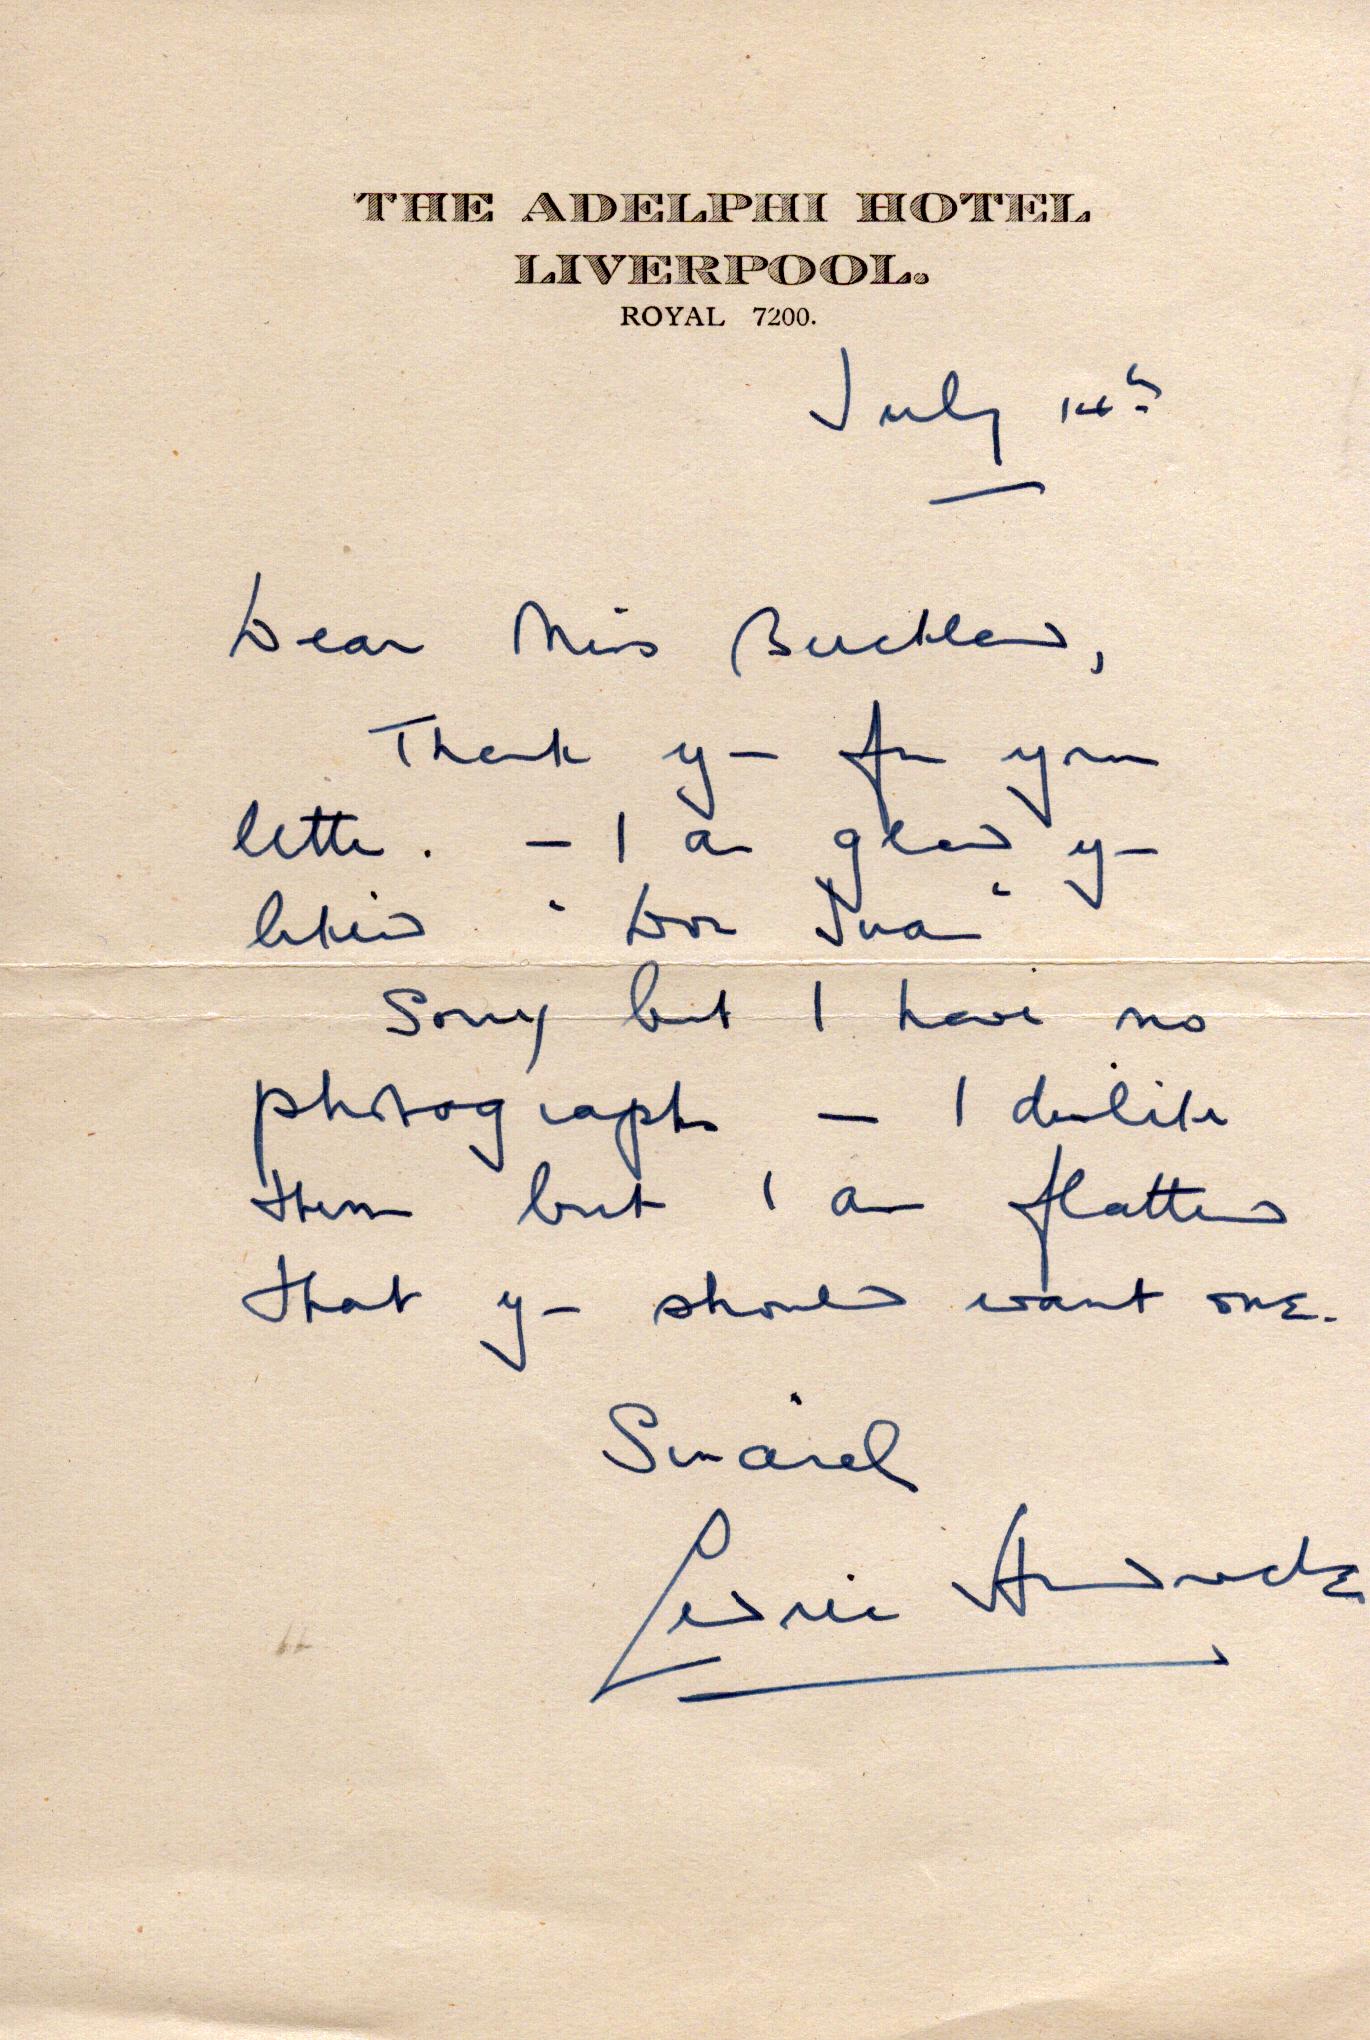 THE ADELPHI HOTEL
LIVERPOOL.
ROYAL 7200.
July 14th
Dear Miss Buckland,
Thank you for your
letter. — I am glad you
liked "Don Juan"
Sorry but I have no
photographs — I dislike
them but I am flattered
that you should want one.
Sincerely
Cedric Hardwicke